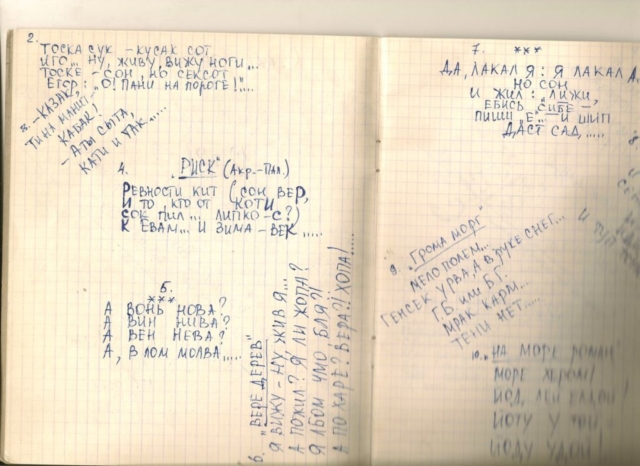 2.
ТОСКА СУК - КУСАК СОТ
ИГО... НУ, ЖИВУ, ВИЖУ НОГИ...
ТОСКЕ - СОН, НО СЕКСОТ
ЕГОР: "О! ПАНИ НА ПОРОГЕ!"...
3. - КАЗАК,
ТИНА МАНИТ,
КАБАК!
- А ТЫ СЫТА,
КАТИ И ТАК.....
4. "РИСК" (АКР.-ПАЛ.)
РЕВНОСТИ КИТ (СОН ВЕР,
И ТО, КТО ОТ КОТИ,
СОК ПИЛ... ЛИПКО-С?)
К ЕВАМ... И ЗИМА - ВЕК.....
5.
***
А ВОНЬ НОВА?
А ВИН НИВА?
А ВЕН НЕВА?
А, В ЛОМ МОЛВА.....
6. "ВЕРЕ ДЕРЕВ"
Я ВИЖУ - НУ ЖИВ Я...
А ПОЖИЛ? Я ЛИ ЖОПА?
Я ЛБОМ ЧМО, БЛЯ?!
А ПО ХАРЕ? ВЕРА?! ХОПА!.....
7. ***
ДА, ЛАКАЛ Я: Я ЛАКАЛ А
НО СОН
И ЖИЛ: ЛИЖИ,
ЕБИСЬ, СИБЕ-,
ПИШИ "Е"... И ШИП
ДАСТ САД.....
8
9. "ГРОМА МОРГ"
МЕЛО ПОЛЕМ...
ГЕНСЕК УРВА, А В РУКЕ СНЕГ...
Г.Б. ИЛИ Б.Г.
МРАК КАРМ...
ТЕНИ НЕТ.....
10. "НА МОРЕ РОМАН
МОРЕ ХЕРОМ!
ЙОД, ЛЕЙ
ЙОТУ У ТОЙ
ЙОДУ УДОЙ!